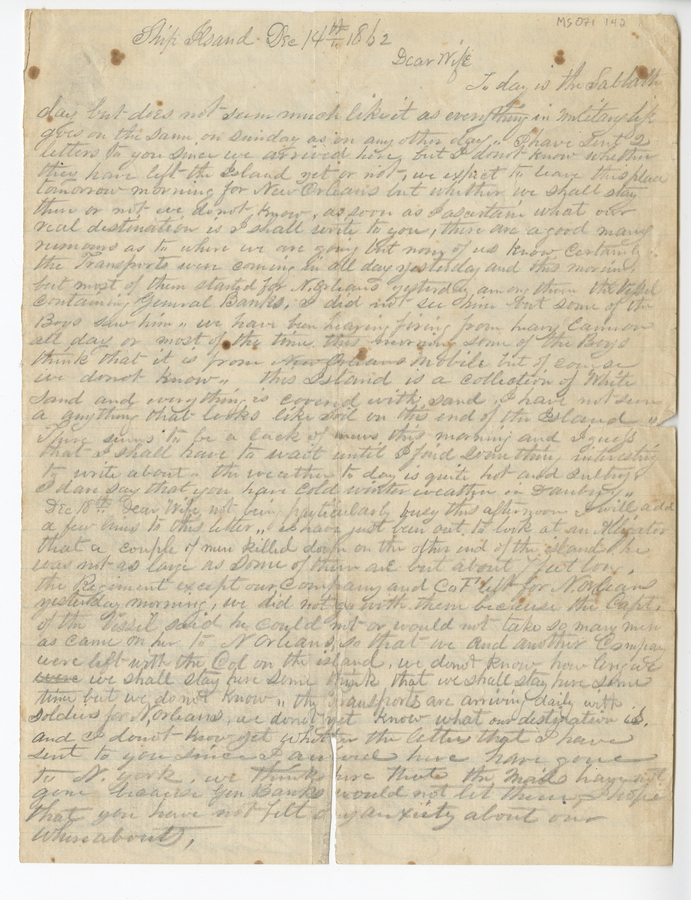 MS 071 142
Ship Island Dec 14th 1862
Dear Wife
To day is the Sabbath
day but does not seem much like it as everything in military life
goes on the same on sunday as on any other day" I have sent 2
letters to you since we arrived here, but I donot know whether
they have left the Island yet or not, we expect to leave this place
tomorrow morning for New Orleans but whether we shall stay
there or not we donot know, as soon as I asertain what our
real destination is I shall write to you, there are a good many
rumours as to where we are going but none of us know certainly.
the Transports were coming in all day yesterday and this morning
but most of them started for N. Orleans yesterday among them the vessel
containing General Banks. I did not see him but some of the
Boys saw him" we have been hearing firing from heavy Cannon
all day or most of the time this morning some of the Boys
think that it is from New Orleans Mobile but of course
we donot know" this Island is a collection of White
sand and everything is covered with sand I have not seen
a anything that looks like soil on this end of the Island"
There seems to be a lack of news this morning and I guess
that I shall have to wait until I find something interesting
to write about. the weather to day is quite hot and sultry
I dare say that you have cold winter weather in Danbury"
Dec 18th Dear Wife, not being particularly busy this afternoon I will add
a few lines to this letter" I have just been out to look at an Alligator
that a couple of men killed down on the other end of the island he
was not as large as some of them are but about 7 feet long.
the Regiment except our Company and Co F left for N. Orleans
yesterday morning, we did not go with them because the Capt.
of the Vessel said he could not or would not take so many men
as came on her to N Orleans, so that we and another Company
were left with the Col on the island, we donot know how long we
were we shall stay here some think that we shall stay here some
time but we donot know" the Transports are arriving daily with
soldiers for N, Orleans, we donot yet know what our destination is.
and I donot know yet whether the letters that I have
sent to you since I arrived here have gone
to N. york, we think here that the mail have not
gone because Gen Banks would not let them, I hope
that you have not felt any anxiety about our
whereabouts,